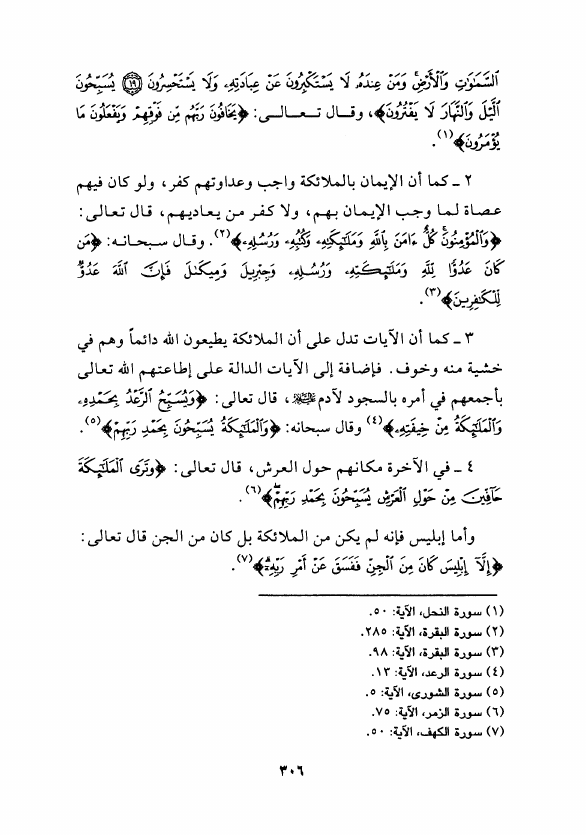 السَّمَٰوَٰتِ وَٱلْأَرْضِ ۚ وَمَنْ عِندَهُۥ لَا يَسْتَكْبِرُونَ عَنْ عِبَادَتِهِۦ وَلَا يَسْتَحْسِرُونَ ﴿١٩﴾ يُسَبِّحُونَ
ٱلَّيْلَ وَٱلنَّهَارَ لَا يَفْتُرُونَ﴾، وقـال تـعـالـى: ﴿يَخَافُونَ رَبَّهُم مِّن فَوْقِهِمْ وَيَفْعَلُونَ مَا
يُؤْمَرُونَ﴾(١).
٢ ـ كما أن الإيمان بالملائكة واجب وعداوتهم كفر، ولو كان فيهم
عصاة لما وجب الإيمان بهم، ولا كفر من يعاديهم، قال تعالى:
﴿وَٱلْمُؤْمِنُونَ ۚ كُلٌّ ءَامَنَ بِٱللَّهِ وَمَلَٰٓئِكَتِهِۦ وَكُتُبِهِۦ وَرُسُلِهِۦ﴾(٢). وقال سبحانه: ﴿مَن
كَانَ عَدُوًّا لِّلَّهِ وَمَلَٰٓئِكَتِهِۦ وَرُسُلِهِۦ وَجِبْرِيلَ وَمِيكَىٰلَ فَإِنَّ ٱللَّهَ عَدُوٌّ
لِّلْكَٰفِرِينَ﴾(٣).
٣ ـ كما أن الآيات تدل على أن الملائكة يطيعون الله دائماً وهم في
خشية منه وخوف. فإضافة إلى الآيات الدالة على إطاعتهم الله تعالى
بأجمعهم في أمره بالسجود لآدم ﷺ، قال تعالى: ﴿وَيُسَبِّحُ ٱلرَّعْدُ بِحَمْدِهِۦ
وَٱلْمَلَٰٓئِكَةُ مِنْ خِيفَتِهِۦ﴾(٤) وقال سبحانه: ﴿وَٱلْمَلَٰٓئِكَةُ يُسَبِّحُونَ بِحَمْدِ رَبِّهِمْ﴾(٥).
٤ ـ في الآخرة مكانهم حول العرش، قال تعالى: ﴿وَتَرَى ٱلْمَلَٰٓئِكَةَ
حَآفِّينَ مِنْ حَوْلِ ٱلْعَرْشِ يُسَبِّحُونَ بِحَمْدِ رَبِّهِمْ﴾(٦).
وأما إبليس فإنه لم يكن من الملائكة بل كان من الجن قال تعالى:
﴿إِلَّآ إِبْلِيسَ كَانَ مِنَ ٱلْجِنِّ فَفَسَقَ عَنْ أَمْرِ رَبِّهِۦٓ﴾(٧).
(١) سورة النحل، الآية: ٥٠.
(٢) سورة البقرة، الآية: ٢٨٥.
(٣) سورة البقرة، الآية: ٩٨.
(٤) سورة الرعد، الآية: ١٣.
(٥) سورة الشورى، الآية: ٥.
(٦) سورة الزمر، الآية: ٧٥.
(٧) سورة الكهف، الآية: ٥٠.
٣٠٦